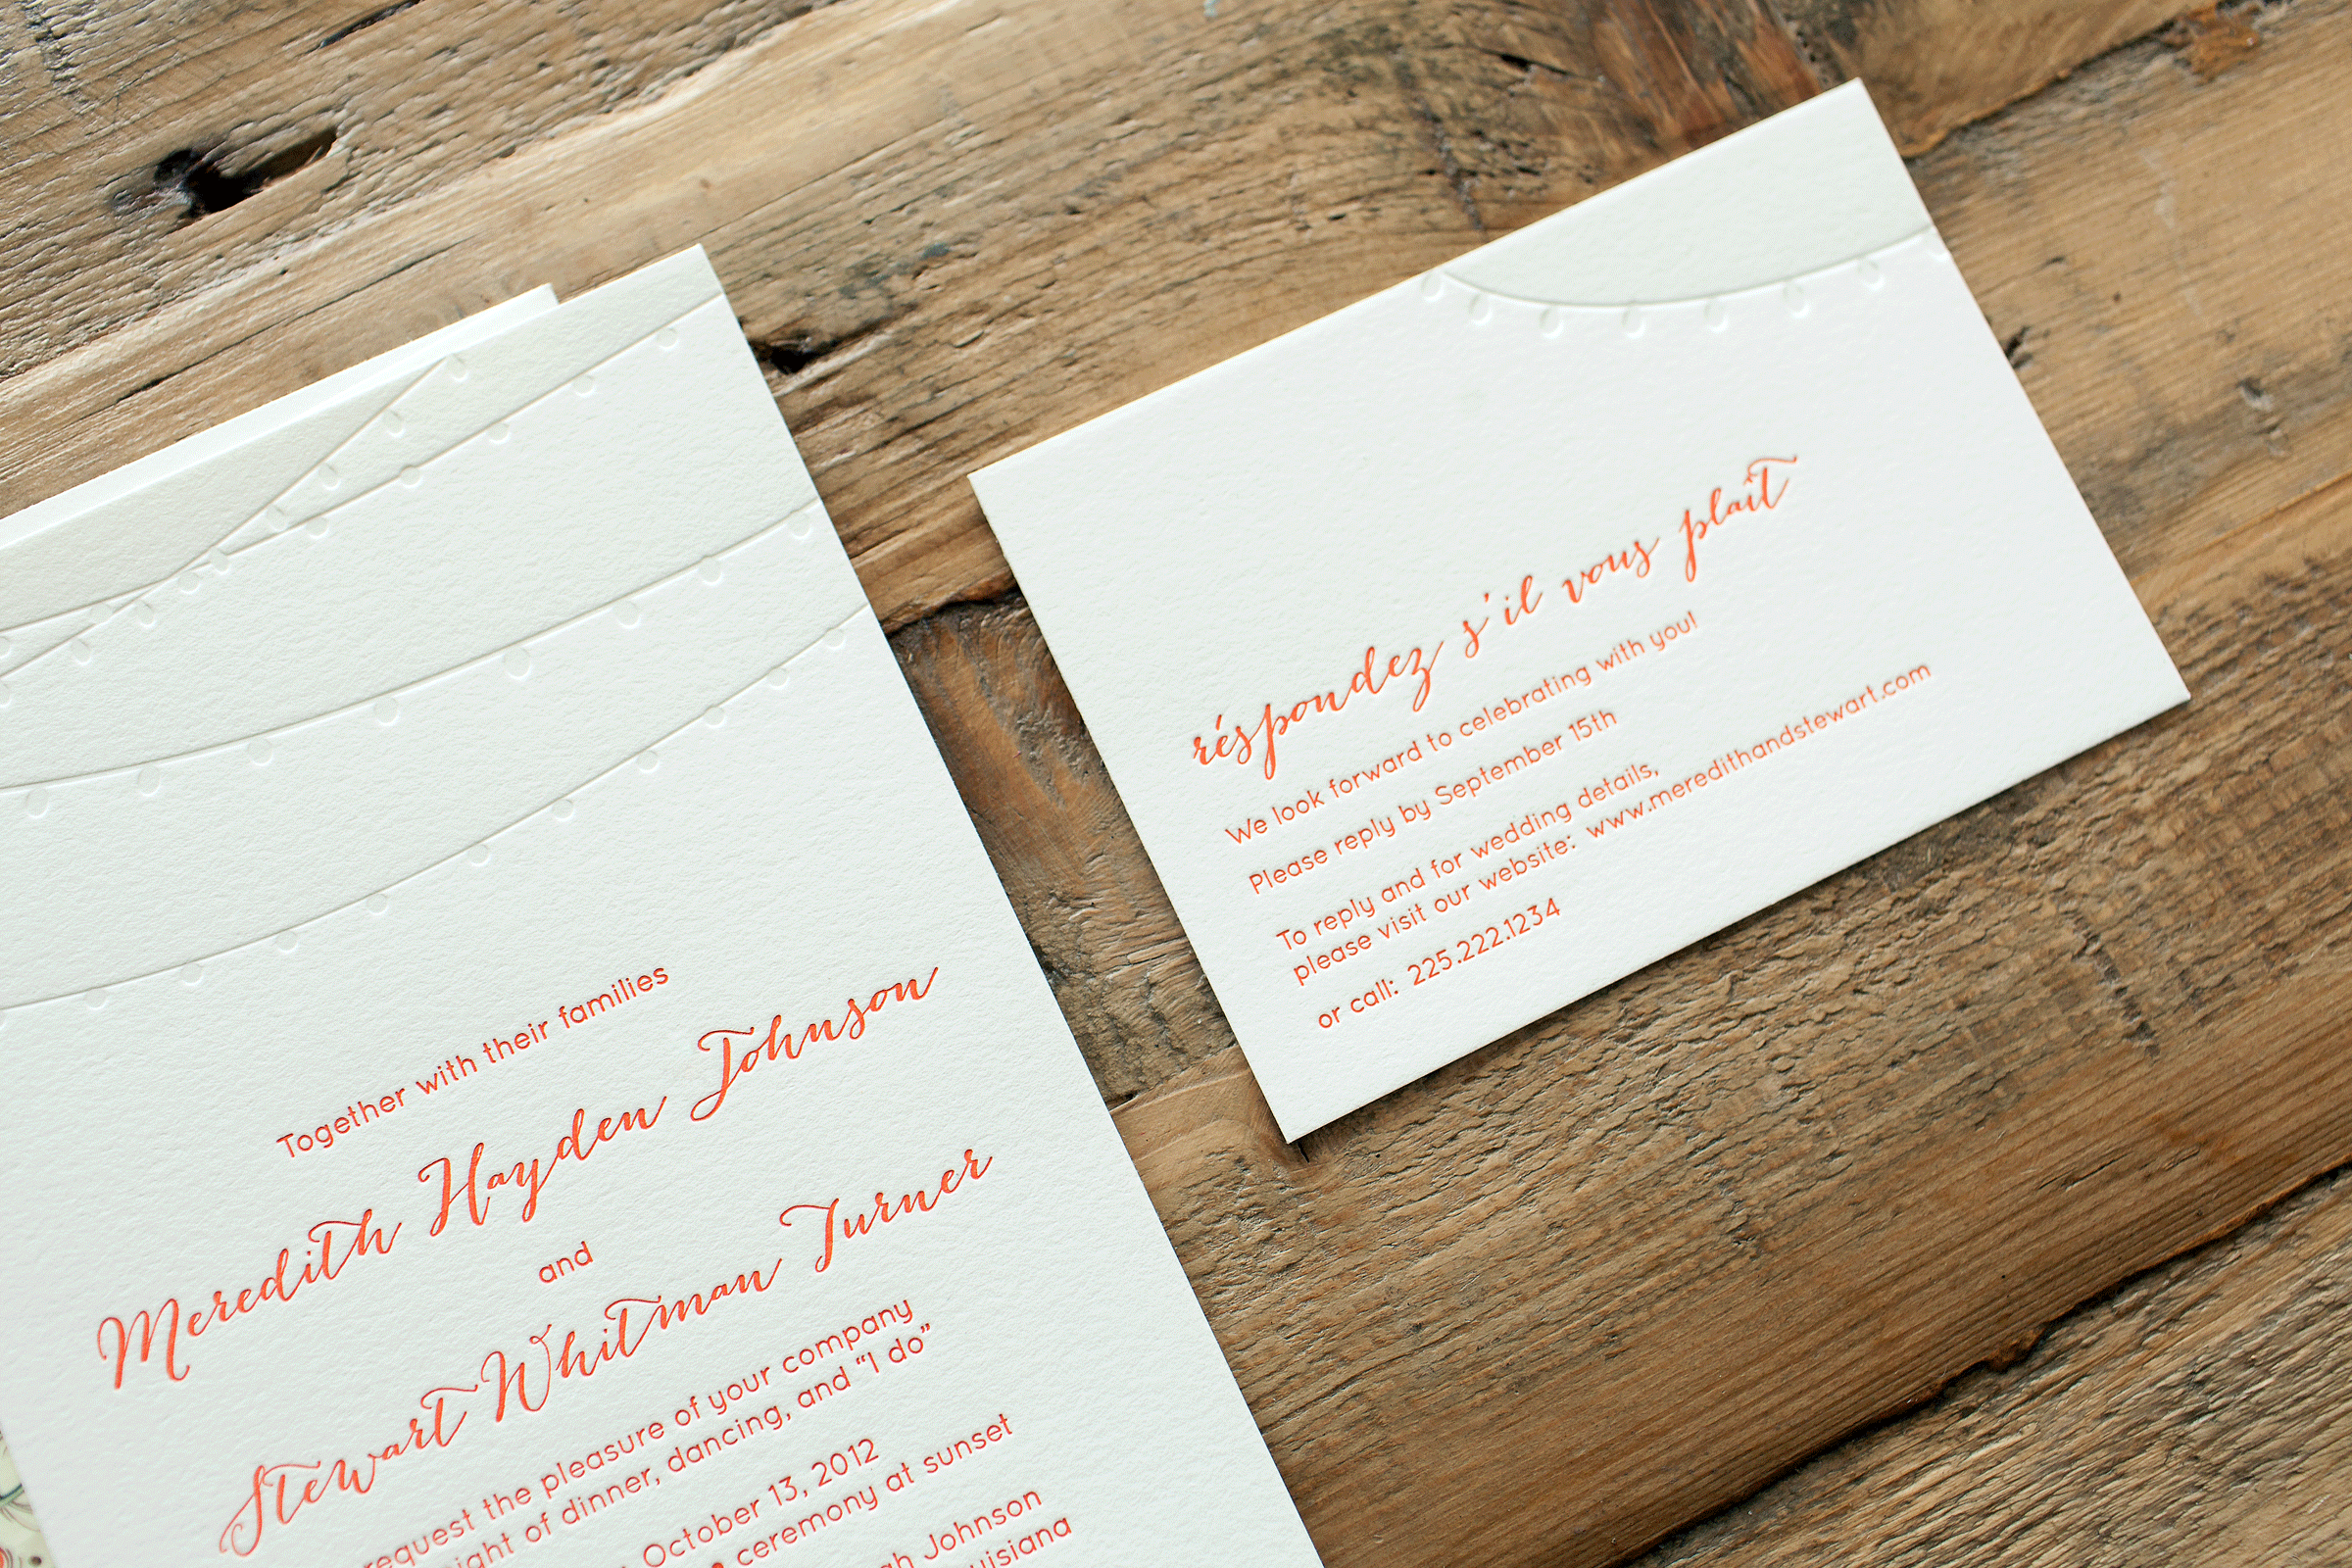 Together with their families
Meredith Hayden Johnson
and
Stewart Whitman Turner
request the pleasure of your company
of dinner, dancing, and “I do”
October 13, 2012
ceremony at sunset
Johnson
réspondez s'il vous plaît
We look forward to celebrating with you!
Please reply by September 15th
To reply and for wedding details,
please visit our website: www.meredithandstewart.com
or call: 225.222.1234